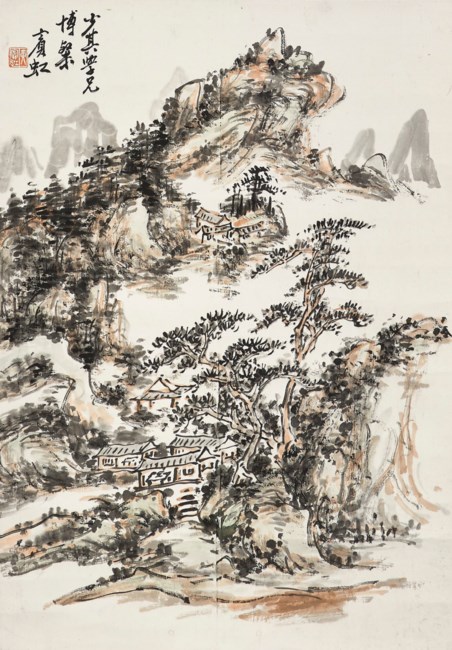 少其學兄
博粲
賓虹